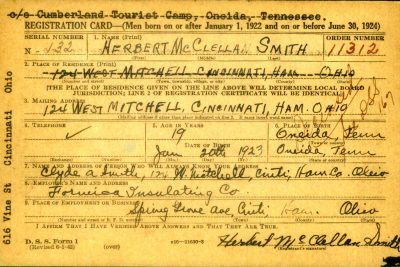 c/o Cumberland Tourist Camp, Oneida, Tennessee.
REGISTRATION CARD—(Men born on or after January 1, 1922 and on or before June 30, 1924)
SERIAL NUMBER
1. NAME (Print)
ORDER NUMBER
N 132
HERBERT MCCLELLAN SMITH
11312
2. PLACE OF RESIDENCE (Print)
124 WEST MITCHELL CINCINNATI, HAM. OHIO
[THE PLACE OF RESIDENCE GIVEN ON THE LINE ABOVE WILL DETERMINE LOCAL BOARD
JURISDICTION; LINE 2 OF REGISTRATION CERTIFICATE WILL BE IDENTICAL]
3. MAILING ADDRESS
124 WEST MITCHELL, CINCINNATI, HAM. OHIO
4. TELEPHONE
5. AGE IN YEARS
6. PLACE OF BIRTH
19
Oneida Tenn
DATE OF BIRTH
Jan 20th 1923
Oneida Tenn
7. NAME AND ADDRESS OF PERSON WHO WILL ALWAYS KNOW YOUR ADDRESS
Clyde a Smith, 124 W. Mitchell, Cinti, Ham Co. Ohio
8. EMPLOYER'S NAME AND ADDRESS
Formica Insulating Co
9. PLACE OF EMPLOYMENT OR BUSINESS
Spring Grove Ave, Cinti Ham. Ohio
I AFFIRM THAT I HAVE VERIFIED ABOVE ANSWERS AND THAT THEY ARE TRUE.
D. S. S. Form 1
(Revised 6-1-42)
(over)
16—21630-2
Herbert McClellan Smith
616 Vine St Cincinnati Ohio